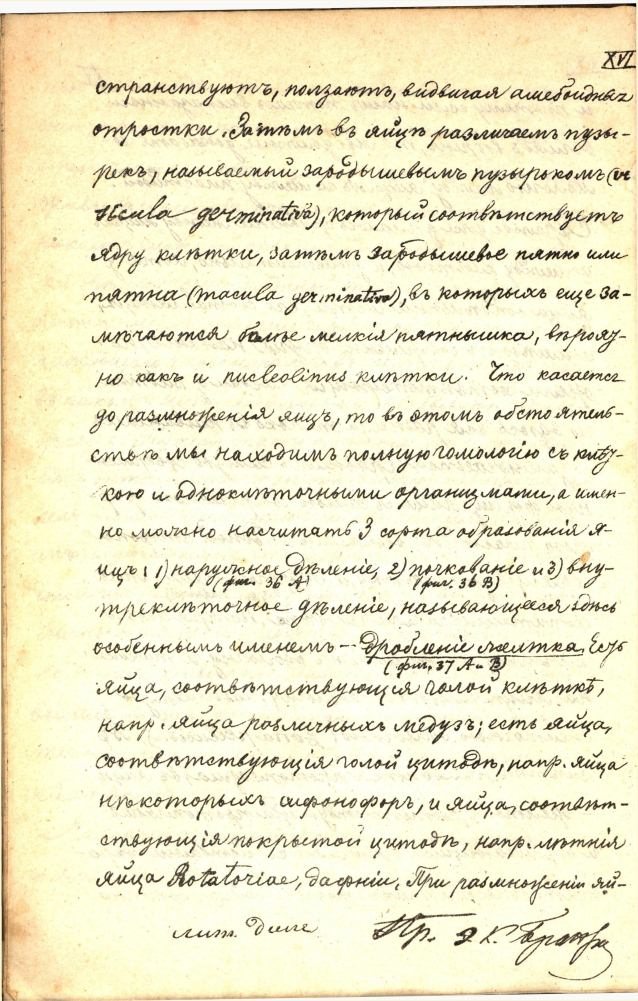 XVI
странствуютъ, ползаютъ, видвигая амебоидных
отростки. Затѣмъ въ яйцѣ различаемъ пузы-
рекъ, называемый зародышевымъ пузырькомъ (ve
sicula germinativa), который соотвѣтствуетъ
ядру клѣтки, затѣмъ зародышевое пятно или
пятна (macula germinativa), въ которыхъ еще за-
мѣчаются болѣе мелкія пятнышка, вѣроят-
но какъ и nucleolinus клѣтки. Что касается
до размноженія яицъ, то въ этомъ обстоятель-
ствѣ мы находимъ полную гомологію съ клѣт-
кою и одноклѣточными организмами, а имен-
но можно насчитать 3 сорта образованія я-
ицъ: 1) наружное дѣленіе, 2) почкованіе и 3) вну-
(фиг. 36 А) (фиг. 36 В)
треклѣточное дѣленіе, называющееся здѣсь
особеннымъ именемъ -- дробленіе желтка. Есть
(фиг. 37 А и В)
яйца, соотвѣтствующія голой клѣткѣ,
напр. яйца различныхъ медузъ; есть яйца,
соотвѣтствующія голой цитодѣ, напр. яйца
нѣкоторыхъ сифонофоръ, и яйца, соотвѣт-
ствующія покрытой цитодѣ, напр. лѣтнія
яйца Rotatoriae, дафніи. При размноженіи яй-
лит. Пр. Э. К.